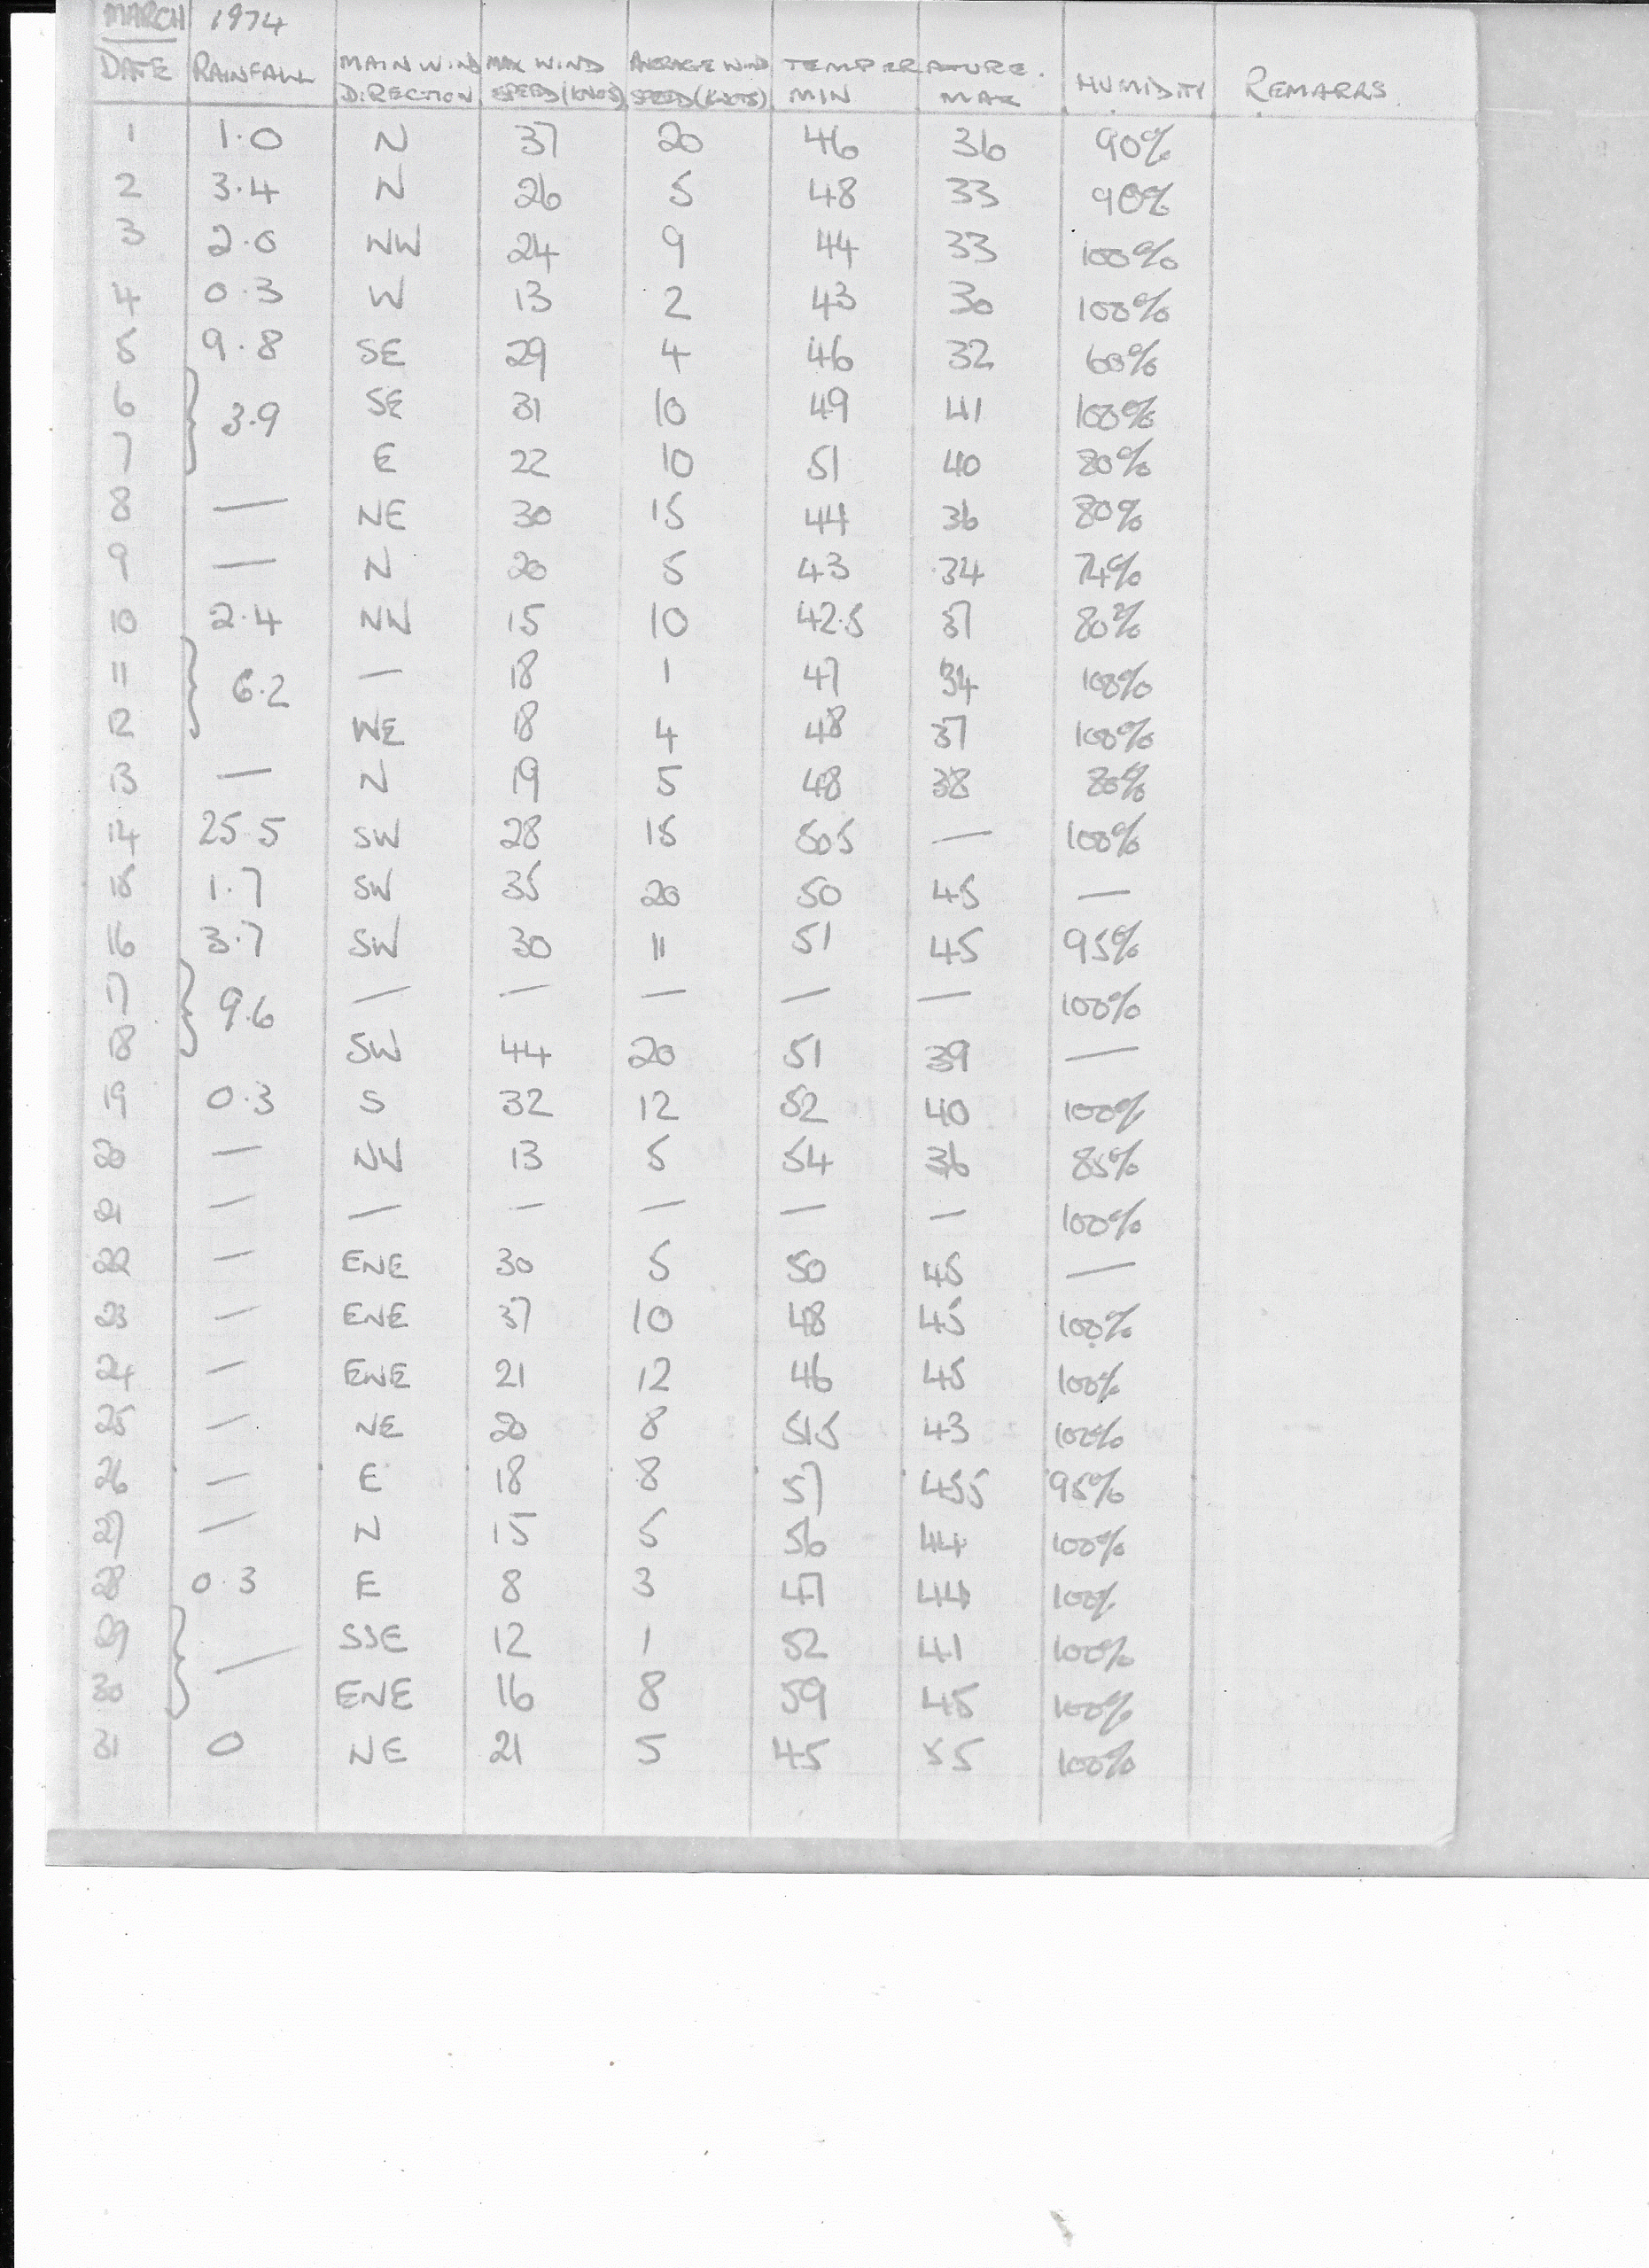 MARCH 1974
DATE RAINFALL MAIN WIND DIRECTION MAX WIND SPEED (KNOS) AVERAGE WIND SPEED (KNOTS) TEMPERATURE. MIN MAX HUMIDITY REMARRS
1 1.0 N 37 20 46 36 90%
2 3.4 N 26 5 48 33 90%
3 2.0 NW 24 9 44 33 100%
4 0.3 W 13 2 43 30 100%
5 9.8 SE 29 4 46 32 60%
6 } 3.9 SE 31 10 49 41 100%
7 E 22 10 51 40 80%
8 — NE 30 15 44 36 80%
9 — N 20 5 43 34 74%
10 2.4 NW 15 10 42.5 37 80%
11 } 6.2 — 18 1 47 34 100%
12 WE 18 4 48 37 100%
13 — N 19 5 48 38 80%
14 25.5 SW 28 15 50 5 — 100%
15 1.7 SW 35 20 50 45 —
16 3.7 SW 30 11 51 45 95%
17 } 9.6 — — — — — 100%
18 SW 44 20 51 39 —
19 0.3 S 32 12 52 40 100%
20 — NW 13 5 54 36 85%
21 — — — — — — 100%
22 — ENE 30 5 50 45 —
23 — ENE 37 10 48 45 100%
24 — ENE 21 12 46 45 100%
25 — NE 20 8 51 5 43 100%
26 — E 18 8 57 45 5 95%
27 — N 15 5 56 44 100%
28 0.3 E 8 3 47 44 100%
29 } — SSE 12 1 52 41 100%
30 ENE 16 8 59 45 100%
31 0 NE 21 5 45 55 100%